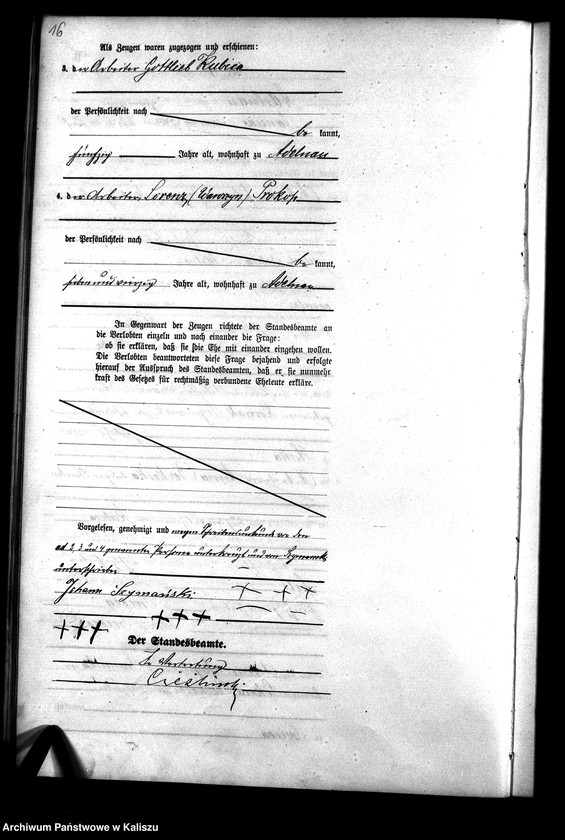 16
Als Zeugen waren zugezogen und erschienen:
3. der Arbeiter Gottlieb Kubica
der Persönlichkeit nach
be kannt,
fünfzig Jahre alt, wohnhaft zu Adelnau
4. der Arbeiter Lorenz (Wawrzyn) Prokop
der Persönlichkeit nach
be kannt,
sieben und vierzig Jahre alt, wohnhaft zu Adelnau
In Gegenwart der Zeugen richtete der Standesbeamte an
die Verlobten einzeln und nach einander die Frage:
ob sie erklären, daß sie die Ehe mit einander eingehen wollen.
Die Verlobten beantworteten diese Frage bejahend und erfolgte
hierauf der Ausspruch des Standesbeamten, daß er sie nunmehr
kraft des Gesetzes für rechtmäßig verbundene Eheleute erkläre.
Vorgelesen, genehmigt und wegen Schreibensunkunde von den
ad 2, 3 und 4 genannten Personen unterkreuzt und von
unterschrieben
Johann Szymański + + +
+ + +
+ + +
Der Standesbeamte.
In Vertretung
Archiwum Państwowe w Kaliszu